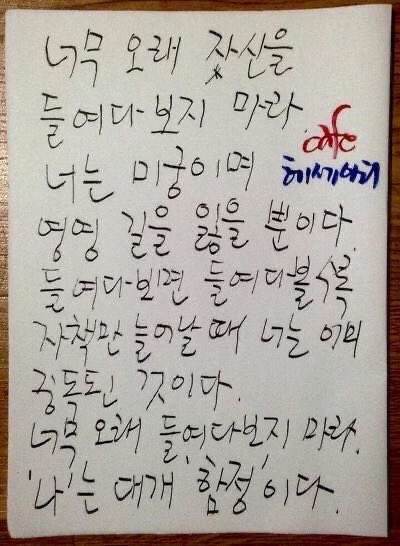 너무 오래 잣신을
들여다보지 마라
cafe
너는 미궁이며
영영 길을 잃을 뿐이다.
들여다보면 들여다볼수록
자책만 늘어날 때 너는 이미
중독된 것이다.
너무 오래 들여다보지 마라.
'나'는 대개 '함정'이다.